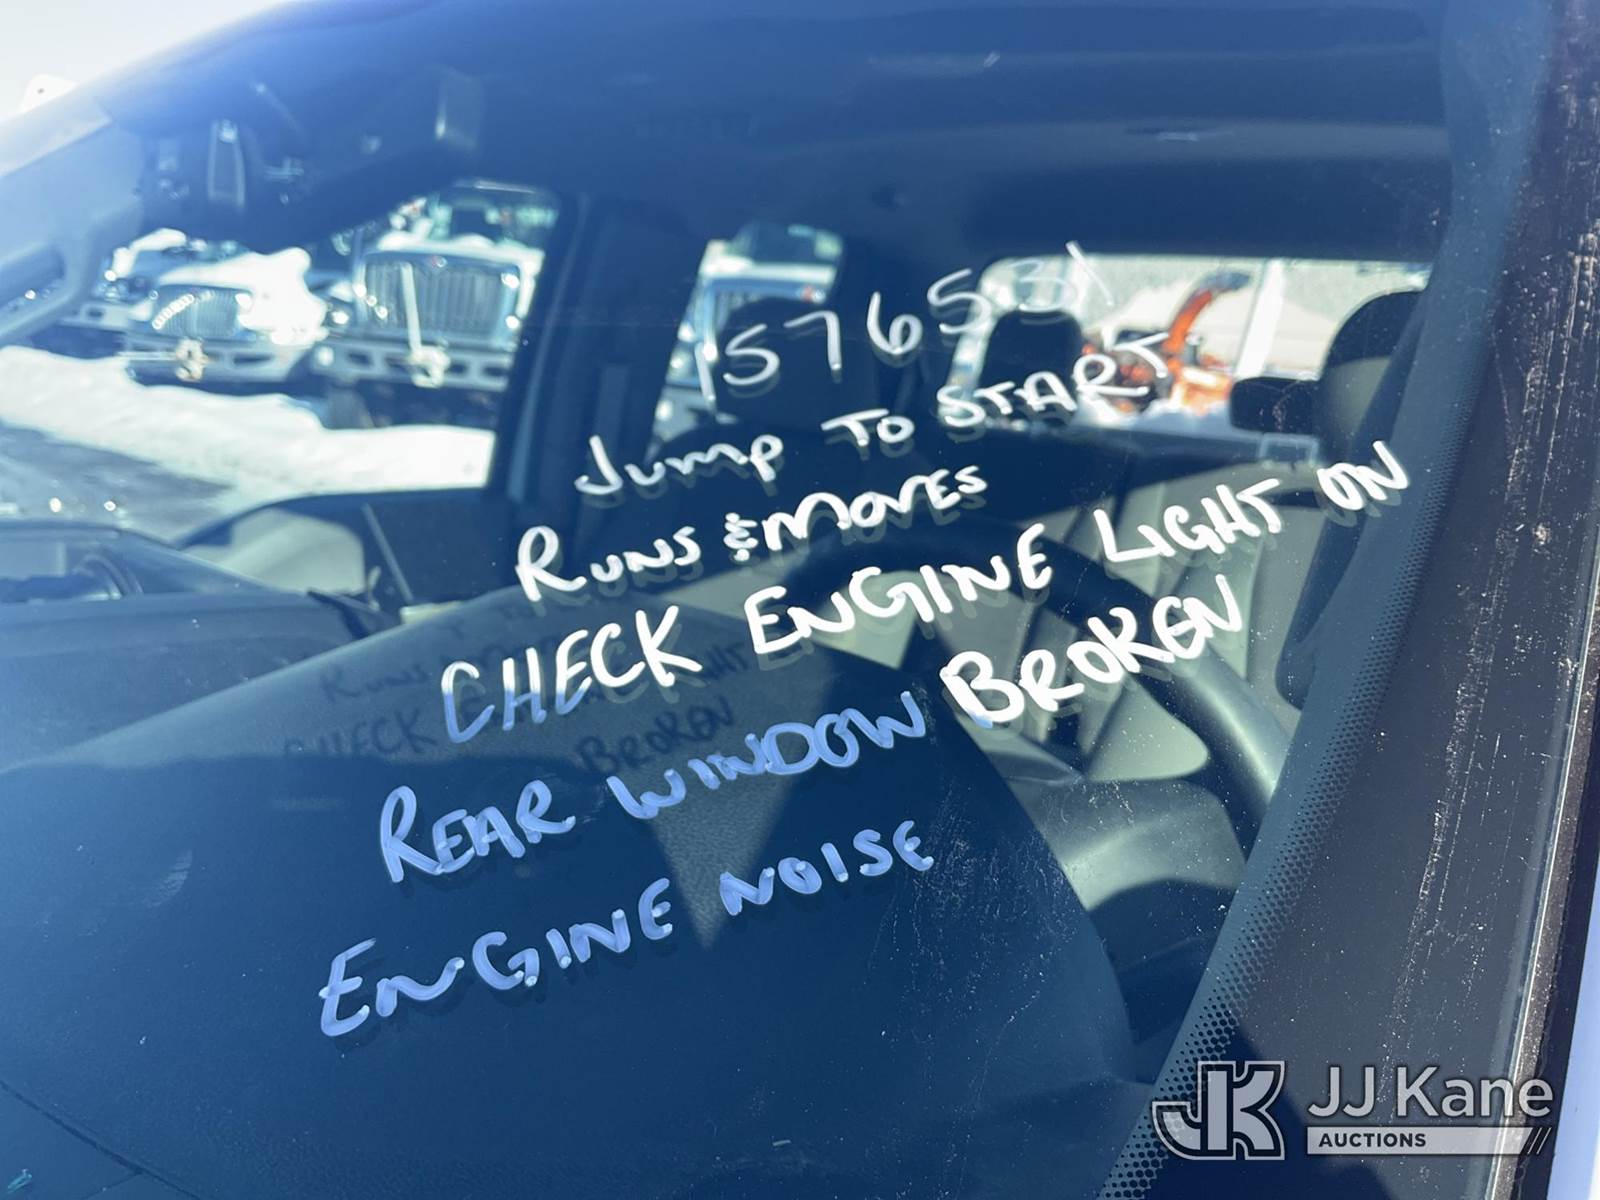 1576531
JUMP TO START
RUNS & MOVES
CHECK ENGINE LIGHT ON
REAR WINDOW BROKEN
ENGINE NOISE
JK JJ Kane
AUCTIONS